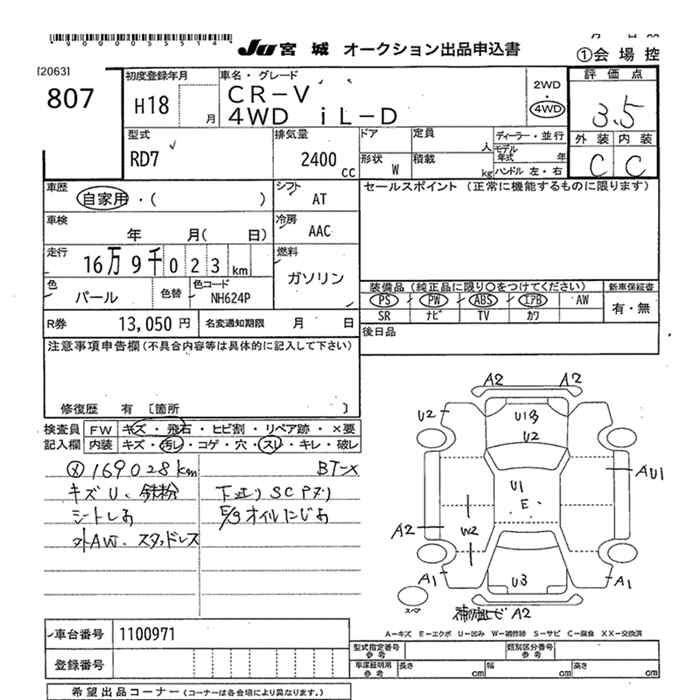 90000055147
JU 宮城 オークション出品申込書
①会場控
[2063]
807
初度登録年月
H18 月
車名・グレード
CR-V
4WD iL-D
2WD
・
4WD
評価点
3.5
外装 内装
C C
型式
RD7
排気量
2400 cc
ドア
定員 人
形状 W
積載 kg
ディーラー・並行
モデル年式 年
ハンドル 左・右
車歴
自家用・( )
シフト
AT
セールスポイント (正常に機能するものに限ります)
車検
年 月( 日)
冷房
AAC
走行
16万9千023km
燃料
ガソリン
色
パール
色替
色コード
NH624P
装備品 (純正品に限り○をつけてください)
新車保証書
PS PW ABS エアB AW
SR ナビ TV カワ
有・無
R券 13,050円
名変通知期限 月 日
後日品
注意事項申告欄(不具合内容等は具体的に記入して下さい)
修復歴 有 〔箇所 〕
検査員 FW キズ・飛石・ヒビ割・リペア跡・×要
記入欄 内装 キズ・汚レ・コゲ・穴・スレ・キレ・破レ
169028km BT-×
キズU、鉄粉 下廻りSCPヌリ
シートしお E/gオイルにじお
外AW、スタッドレス
A2 A2
U2 U13
U2
U1
E
AU1
A2 W2
A1 U3 A1
スペア
A2
A-キズ E-エクボ U-凹み W-補修跡 S-サビ C-腐食 XX-交換済
車台番号 1100971
型式指定番号参考
類別区分番号参考
登録番号
車庫証明用参考
長さ cm 幅 cm 高さ cm
希望出品コーナー (コーナーは各会場により異なります。)